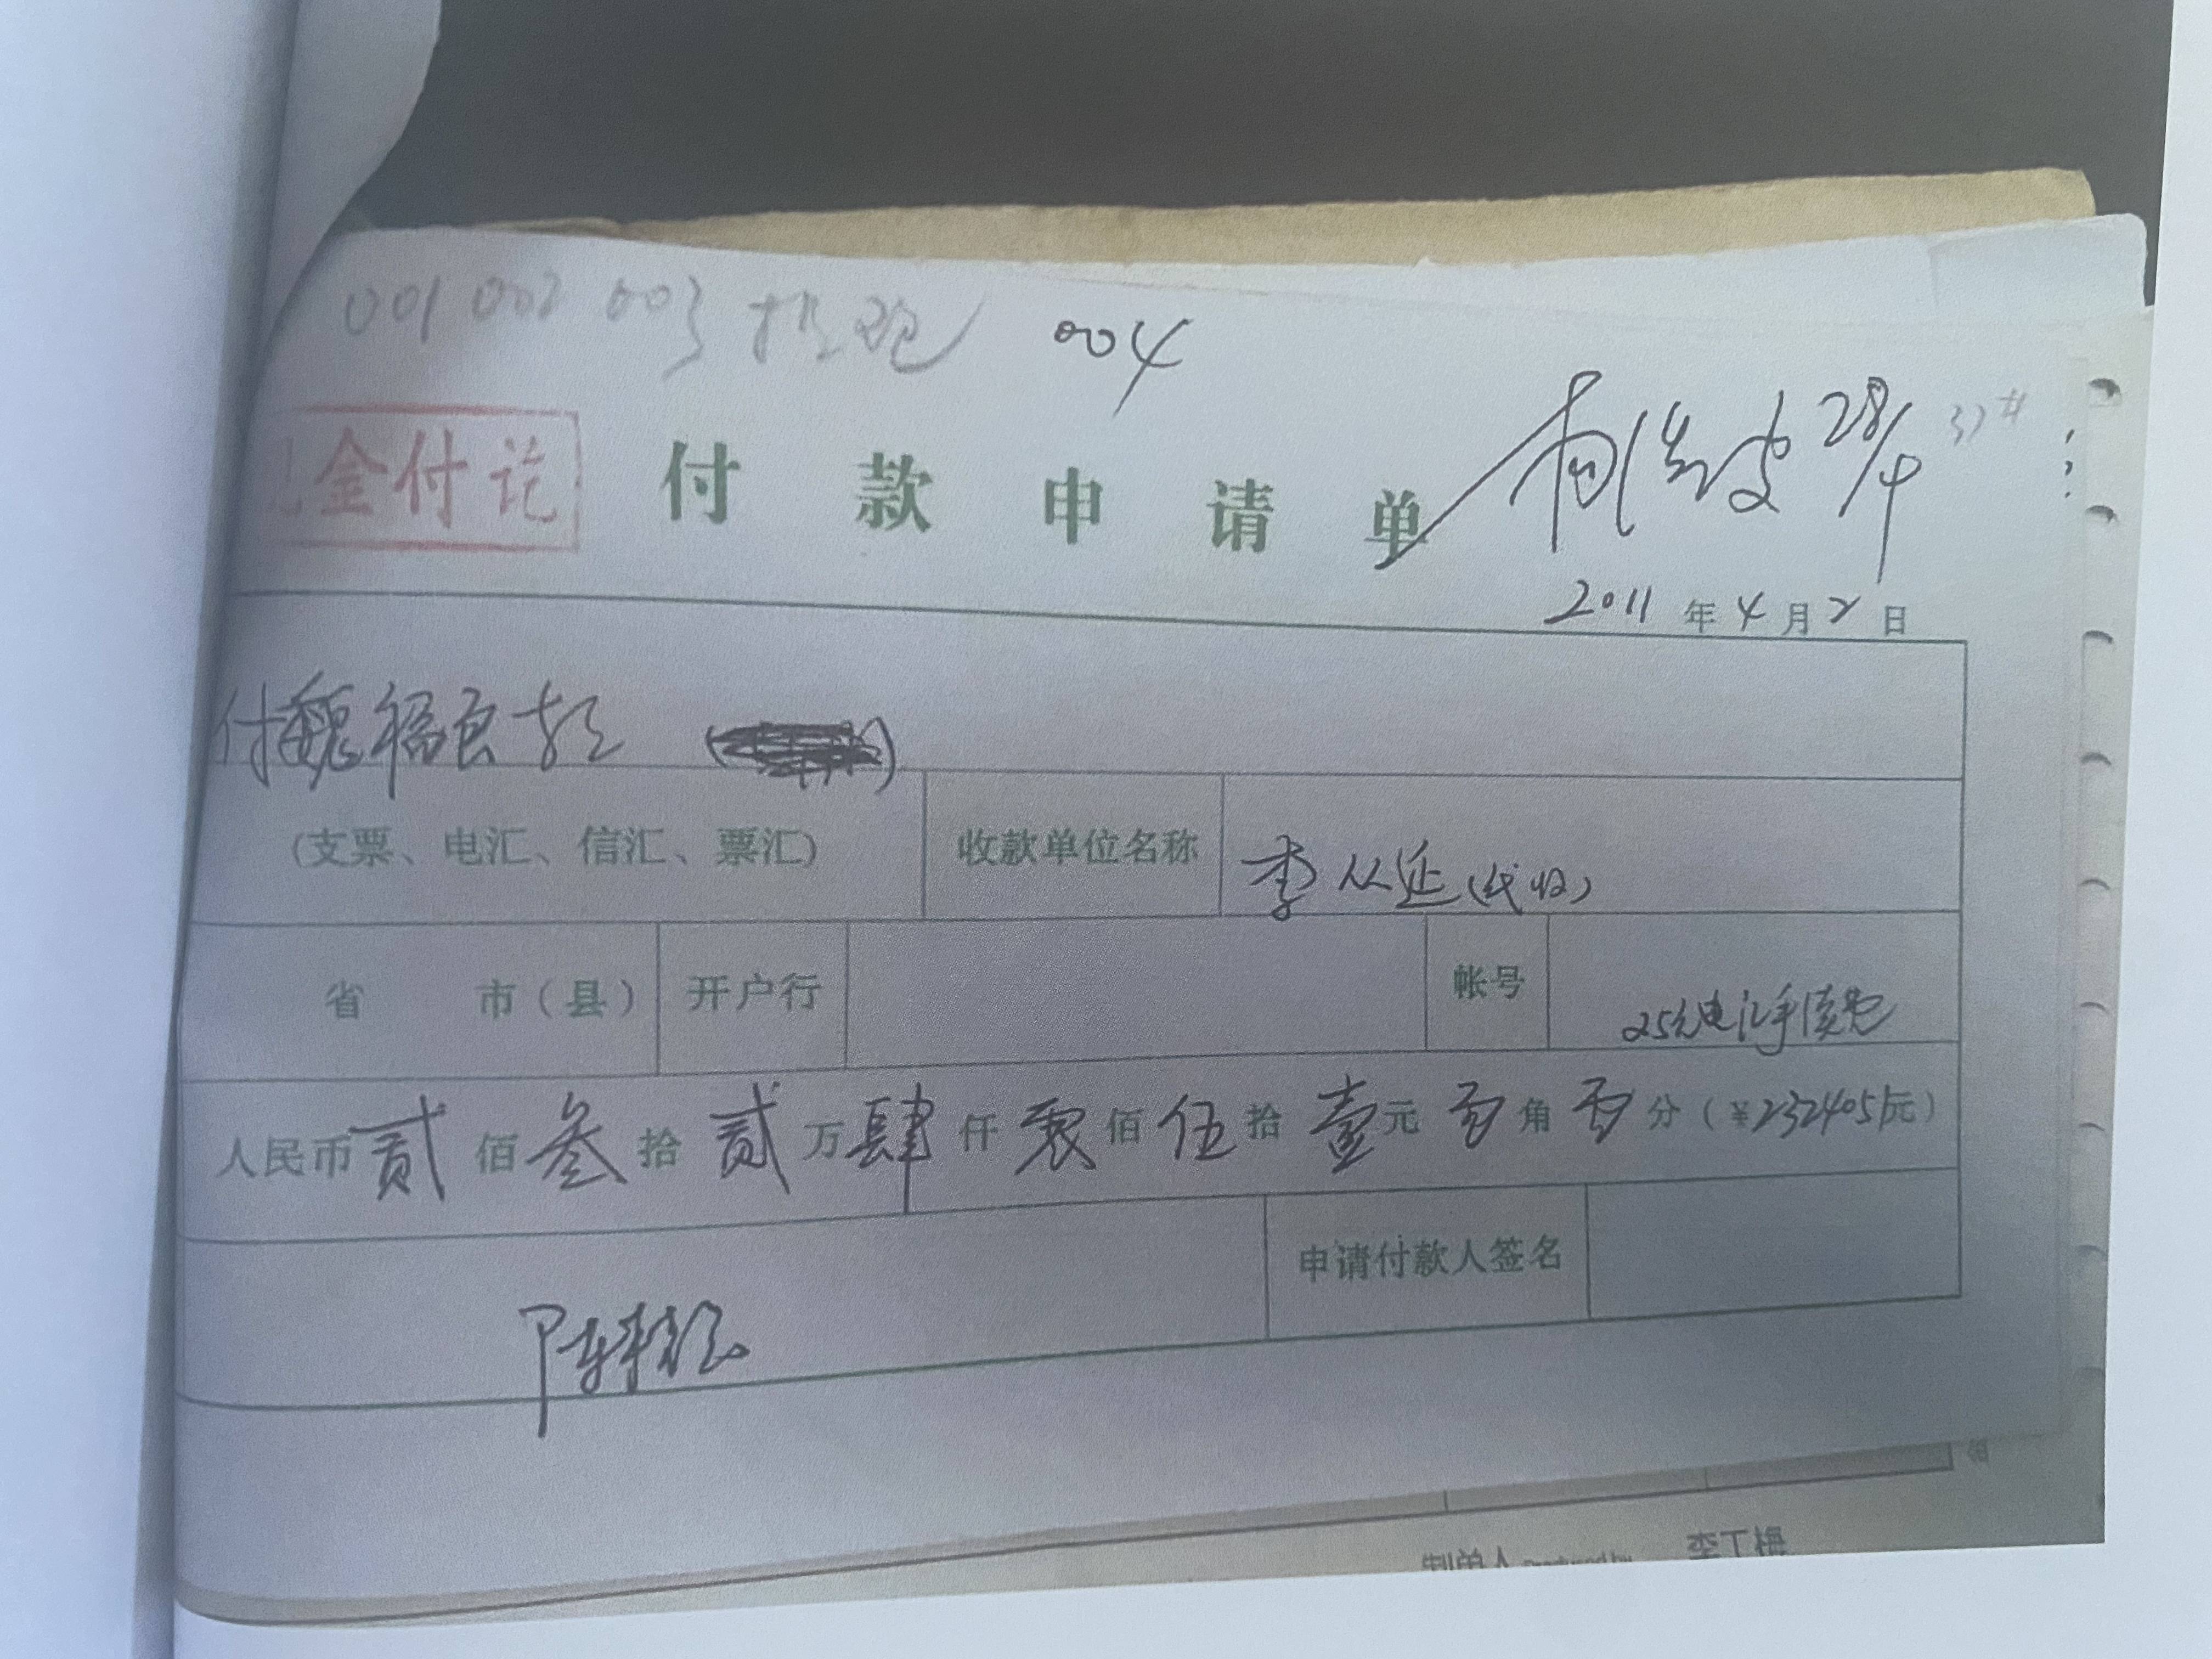 001 002 003 004
金付讫
付款申请单
28/4
2011年4月2日
付魏福良款
(支票、电汇、信汇、票汇) 收款单位名称 李从延(代收)
省 市(县) 开户行 帐号 25元电汇手续费
人民币贰佰叁拾贰万肆仟零佰伍拾壹元零角零分(¥2324051元)
申请付款人签名
制单人 Produced by 李丁梅